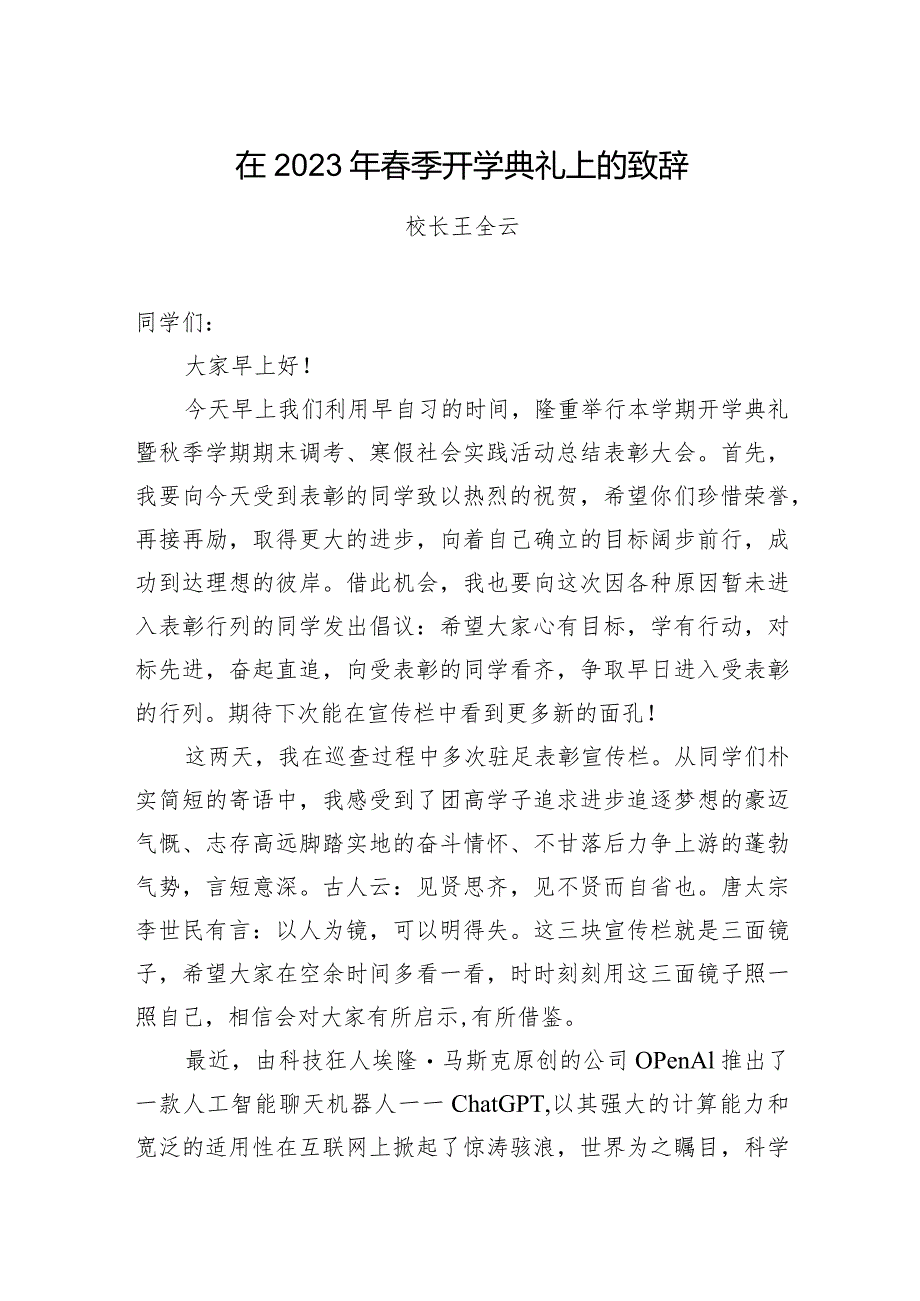 在2023年春季开学典礼上的致辞
校长王全云
同学们：
大家早上好！
今天早上我们利用早自习的时间，隆重举行本学期开学典礼
暨秋季学期期末调考、寒假社会实践活动总结表彰大会。首先，
我要向今天受到表彰的同学致以热烈的祝贺，希望你们珍惜荣誉，
再接再励，取得更大的进步，向着自己确立的目标阔步前行，成
功到达理想的彼岸。借此机会，我也要向这次因各种原因暂未进
入表彰行列的同学发出倡议：希望大家心有目标，学有行动，对
标先进，奋起直追，向受表彰的同学看齐，争取早日进入受表彰
的行列。期待下次能在宣传栏中看到更多新的面孔！
这两天，我在巡查过程中多次驻足表彰宣传栏。从同学们朴
实简短的寄语中，我感受到了团高学子追求进步追逐梦想的豪迈
气慨、志存高远脚踏实地的奋斗情怀、不甘落后力争上游的蓬勃
气势，言短意深。古人云：见贤思齐，见不贤而自省也。唐太宗
李世民有言：以人为镜，可以明得失。这三块宣传栏就是三面镜
子，希望大家在空余时间多看一看，时时刻刻用这三面镜子照一
照自己，相信会对大家有所启示,有所借鉴。
最近，由科技狂人埃隆·马斯克原创的公司OPenAl推出了
一款人工智能聊天机器人一一ChatGPT,以其强大的计算能力和
宽泛的适用性在互联网上掀起了惊涛骇浪，世界为之瞩目，科学